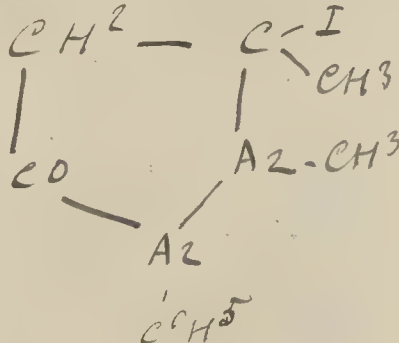 CH² — C I
CH³
CO Az - CH³
Az
C⁶H⁵